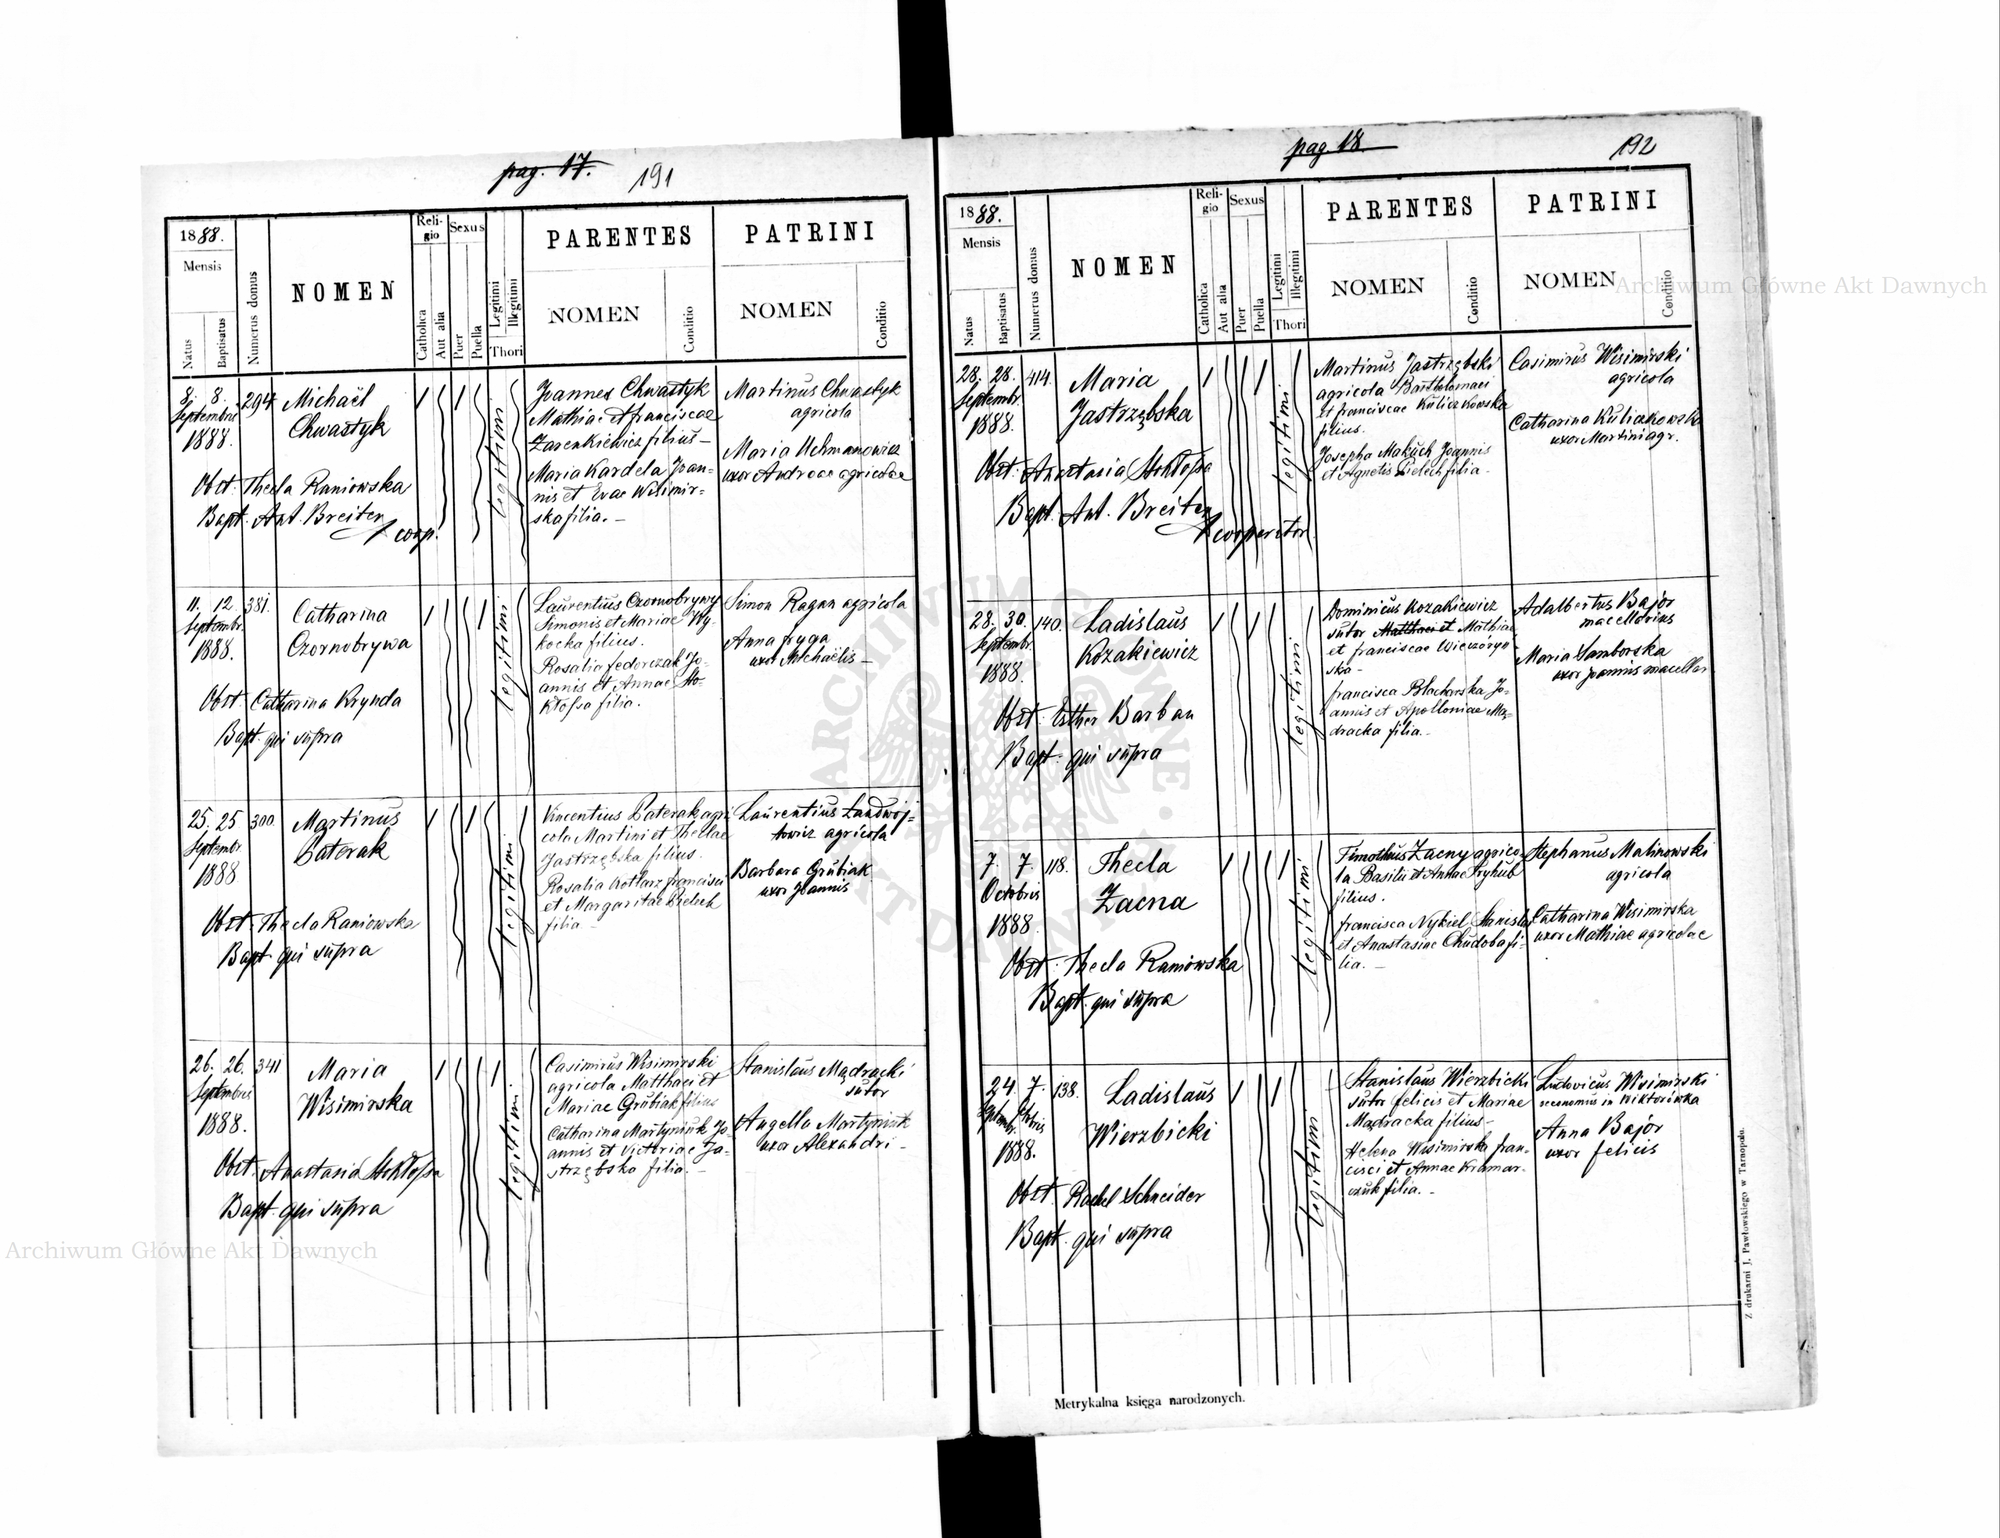 pag. 17. 191
1888.
Mensis
Natus
Baptisatus
Numerus domus
NOMEN
Religio
Catholica
Aut alia
Sexus
Puer
Puella
Legitimi
Illegitimi
Thori
PARENTES
NOMEN
Conditio
PATRINI
NOMEN
Conditio
8. 8. 294
Septembris
1888.
Michaël
Chwastyk
Obst: Thecla Raniowska
Bapt. Ant. Breiter
coop.
legitimi
Joannes Chwastyk
Mathiae et franciscae
Zarenkiewicz filius –
Maria Kardela Joan-
nis et Evae Wisimir-
ska filia. –
Martinus Chwastyk
agricola
Maria Uchmanowicz
uxor Andreae agricolae
11. 12. 381.
Septembr.
1888.
Catharina
Czornobrywa
Obst: Catharina Krynda
Bapt. qui supra
legitimi
Laurentius Czornobrywy
Simonis et Mariae Wy-
kocka filius.
Rosalia fedorczak Jo-
annis et Annae Sto-
kłossa filia.
Simon Ragan agricola
Anna fryga
uxor Michaëlis –
25. 25 300.
Septembr.
1888
Martinus
Paterak
Obst: Thecla Raniowska
Bapt. qui supra
legitimi
Vincentius Paterak agri
cola Martini et Theclae
Jastrzębska filius.
Rosalia Kotlarz francisci
et Margaritae Pielech
filia –
Laurentius Landwoj-
towicz agricola
Barbara Grubiak
uxor Joannis
26. 26. 341
Septembris
1888.
Maria
Wisimirska
Obst: Anastasia Stokłossa
Bapt. qui supra
legitimi
Casimirus Wisimirski
agricola Matthaei et
Mariae Grubiak filius
Catharina Martyniuk Jo-
annis et Victoriae Ja-
strzębska filia. –
Stanislaus Mądracki
sutor
Angella Martyniuk
uxor Alexandri –
pag. 18. 192
1888.
Mensis
Natus
Baptisatus
Numerus domus
NOMEN
Religio
Catholica
Aut alia
Sexus
Puer
Puella
Legitimi
Illegitimi
Thori
PARENTES
NOMEN
Conditio
PATRINI
NOMEN
Conditio
28. 28. 414.
Septembr.
1888.
Maria
Jastrzębska
Obst: Anastasia Stokłossa
Bapt. Ant. Breiter
cooperator.
legitimi
Martinus Jastrzębski
agricola Bartholomaei
et franciscae Kuliczkowska
filius.
Josepha Makuch Joannis
et Agnetis Pielech filia –
Casimirus Wisimirski
agricola
Catharina Kuliczkowska
uxor Martini agr.
28. 30. 140.
Septembr.
1888.
Ladislaus
Kozakiewicz
Obst: Esther Barban
Bapt: qui supra
legitimi
Dominicus Kozakiewicz
sutor Matthaei et Mathiae
et franciscae Wieczóryń
ska –
francisca Blachowska Jo-
annis et Apolloniae Mą-
dracka filia. –
Adalbertus Bajor
macellarius
Maria Samborska
uxor Joannis macellar
7. 7. 118.
Octobris
1888
Thecla
Zacna
Obst: Thecla Raniowska
Bapt. qui supra
legitimi
Timotheus Zacny agrico-
la Basilii et Annae Hryhub
filius.
francisca Nykiel Stanislai
et Anastasiae Chudoba fi-
lia. –
Stephanus Malinowski
agricola
Catharina Wisimirska
uxor Mathiae agricolae
24. 7. 138.
Septembr. Octobris
1888.
Ladislaus
Wierzbicki
Obst: Rachel Schneider
Bapt. qui supra
legitimi
Stanislaus Wierzbicki
sutor felicis et Mariae
Mądracka filius –
Helena Wisimirska fran-
cisci et Annae Kramar-
czuk filia. –
Ludovicus Wisimirski
oeconomus in Wiktorówka
Anna Bajor
uxor felicis
Metrykalna księga narodzonych.
Z drukarni J. Pawłowskiego w Tarnopolu.
Archiwum Główne Akt Dawnych
Archiwum Główne Akt Dawnych
ARCHIWUM GŁÓWNE AKT DAWNYCH